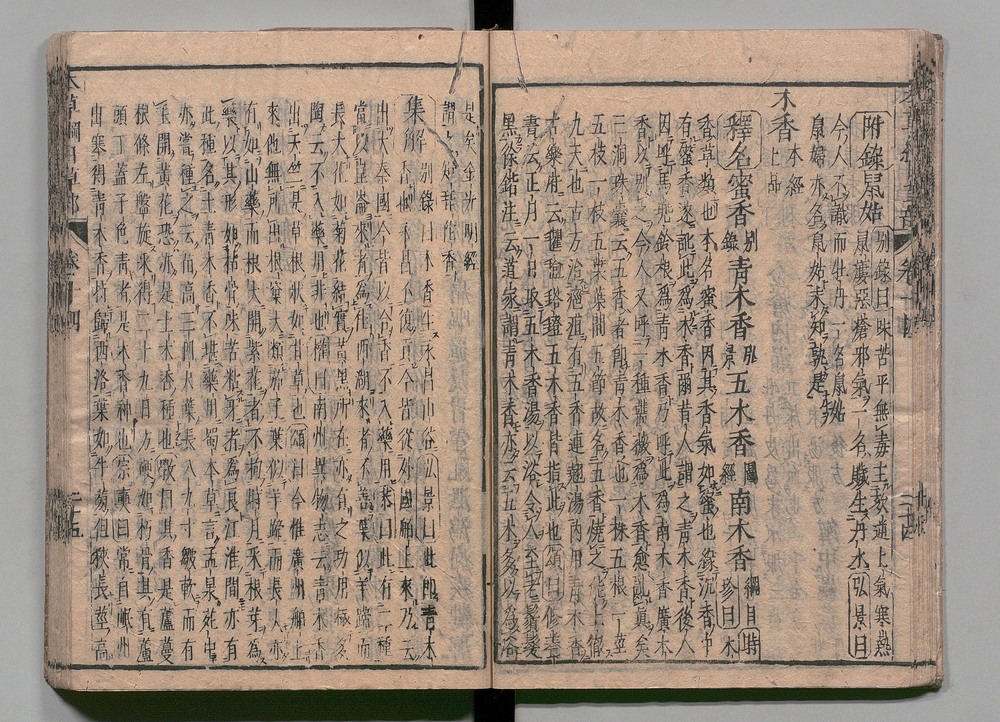 附錄鼠姑別錄曰味苦平無毒主欬逆上氣寒熱
鼠瘻惡瘡邪氣一名䑕生丹水弘景曰
今人不識而牡丹一名鼠姑
鼠婦亦名鼠姑未知孰是
木香本經上品
釋名蜜香別錄青木香弘景五木香圖經南木香綱目時珍曰木
香草類也本名蜜香因其香氣如蜜也緣沉香中
有蜜香遂訛此為木香爾昔人謂之青木香後人
因呼馬兜鈴根為青木香乃呼此為南木香廣木
香以別之今人又呼一種薔薇為木香愈亂真矣
三洞珠囊云五香者即青木香也一株五根一莖
五枝一枝五葉葉間五節故名五香燒之能上徹
九天也古方治癰疽有五香連翹湯內用青木香
古樂府云氍毹㲪㲪五木香皆指此也頌曰修養
書云正月一日取五木香湯以浴令人至老鬚髮
黑徐鍇注云道家謂青木香亦云五木多以為浴
是矣金
集解別錄曰木香生永昌山谷弘景曰此即青木
香也永昌不復貢今皆從外國舶上來乃云
出大秦國今皆以合香不入藥用恭曰此有二種
當以崑崙來者為佳西湖來者不善葉似羊蹄而
長大花如菊花結實黃黑所在亦有之功用極多
陶云不入藥用非也權曰南州異物志云青木香
出天竺是草根狀如甘草也頌曰今惟廣州舶上
來他無所出根窠大類茄子葉似羊蹄而長大亦
有如山藥而根大開紫花者不拘時月采根芽為
藥以其形如枯骨味苦粘牙者為良江淮間亦有
此種名土青木香不堪藥用蜀本草言孟昶苑中
亦嘗種之云苗高三四尺葉長八九寸皺軟而有
毛開黃花恐亦是土木香種也斅曰其香是蘆蔓
根條左盤旋采得二十九日方硬如朽骨其有蘆
頭丁蓋子色青者是木香神也宗奭曰常自岷州
出塞得青木香持歸西洛葉如牛蒡但狹長莖高